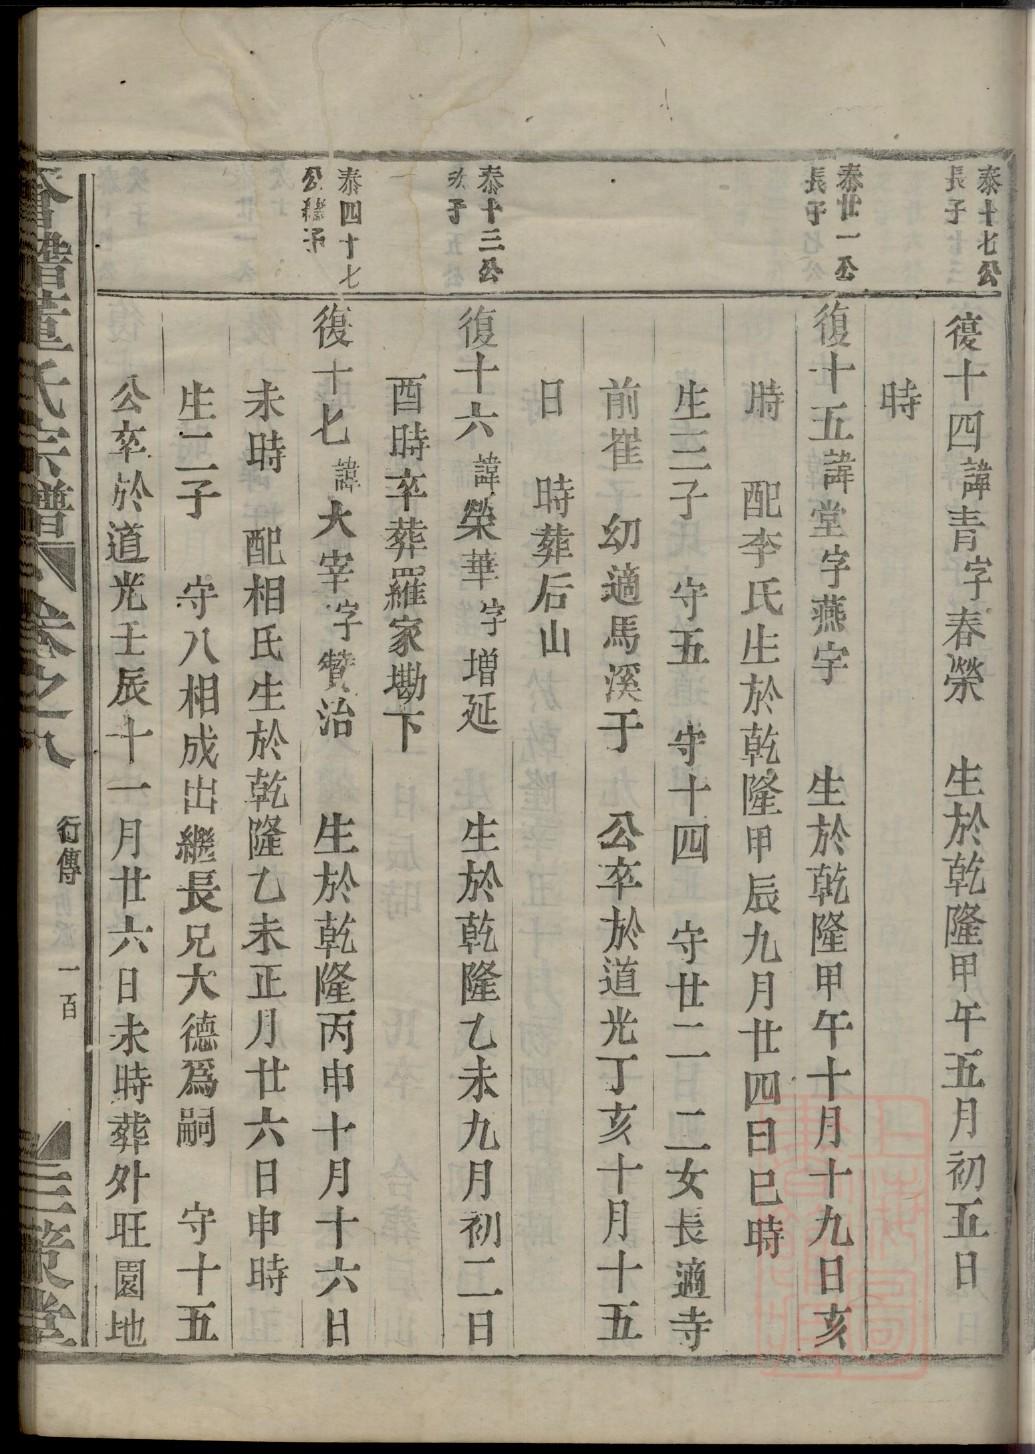 泰十七公
長子
復十四諱青字春榮 生於乾隆甲午五月初五日
時
泰廿一公
長子
復十五諱堂字燕宇 生於乾隆甲午十月十九日亥
時 配李氏生於乾隆甲辰九月廿四日巳時
生三子 守五 守十四 守廿二 二女長適寺
前崔子 幼適馬溪于 公卒於道光丁亥十月十五
日 時葬后山
泰十三公
次子
復十六諱榮華字增延 生於乾隆乙未九月初二日
酉時卒葬羅家墈下
泰四十七
公繼子
復十七諱大宰字贊治 生於乾隆丙申十月十六日
未時 配相氏生於乾隆乙未正月廿六日申時
生二子 守八相成出繼長兄大德爲嗣 守十五
公卒於道光壬辰十一月廿六日未時葬外旺園地
董氏宗譜 卷之八 行傳 一百 三策堂